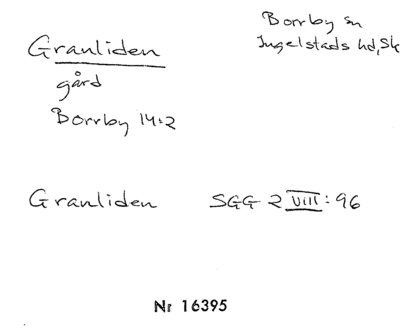 Granliden
Borrby sn
Ingelstads hd, Sk
gård
Borrby 14:2
Granliden SGG 2 VIII: 96
Nr 16395